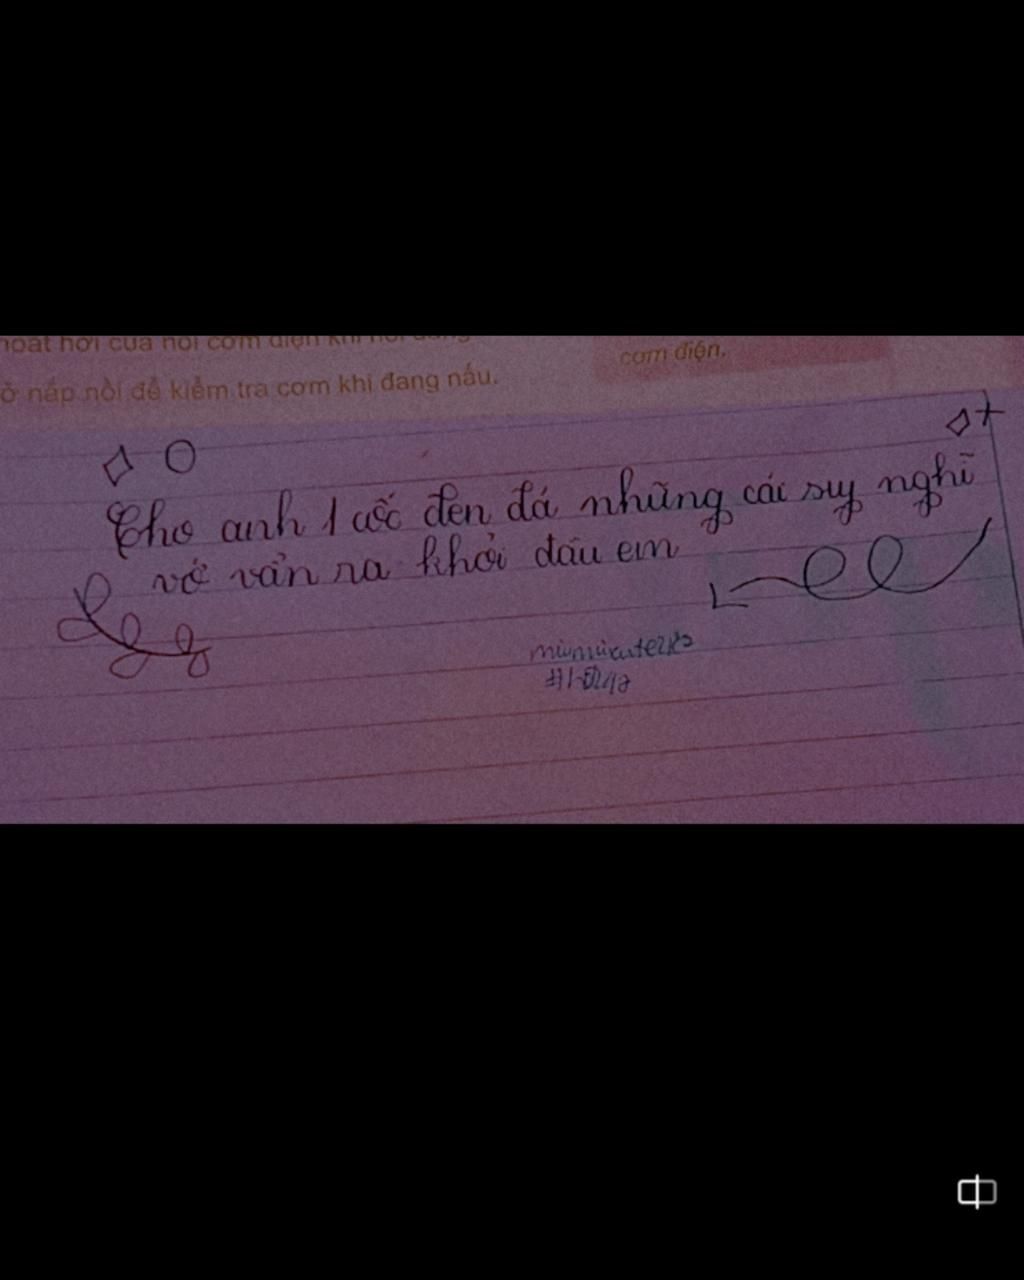 hoát hơi của nồi cơm điện khi nồi
cơm điện.
ở nắp nồi để kiểm tra cơm khi đang nấu.
Cho anh 1 cốc đen đá những cái suy nghĩ
vớ vẩn ra khỏi đầu em